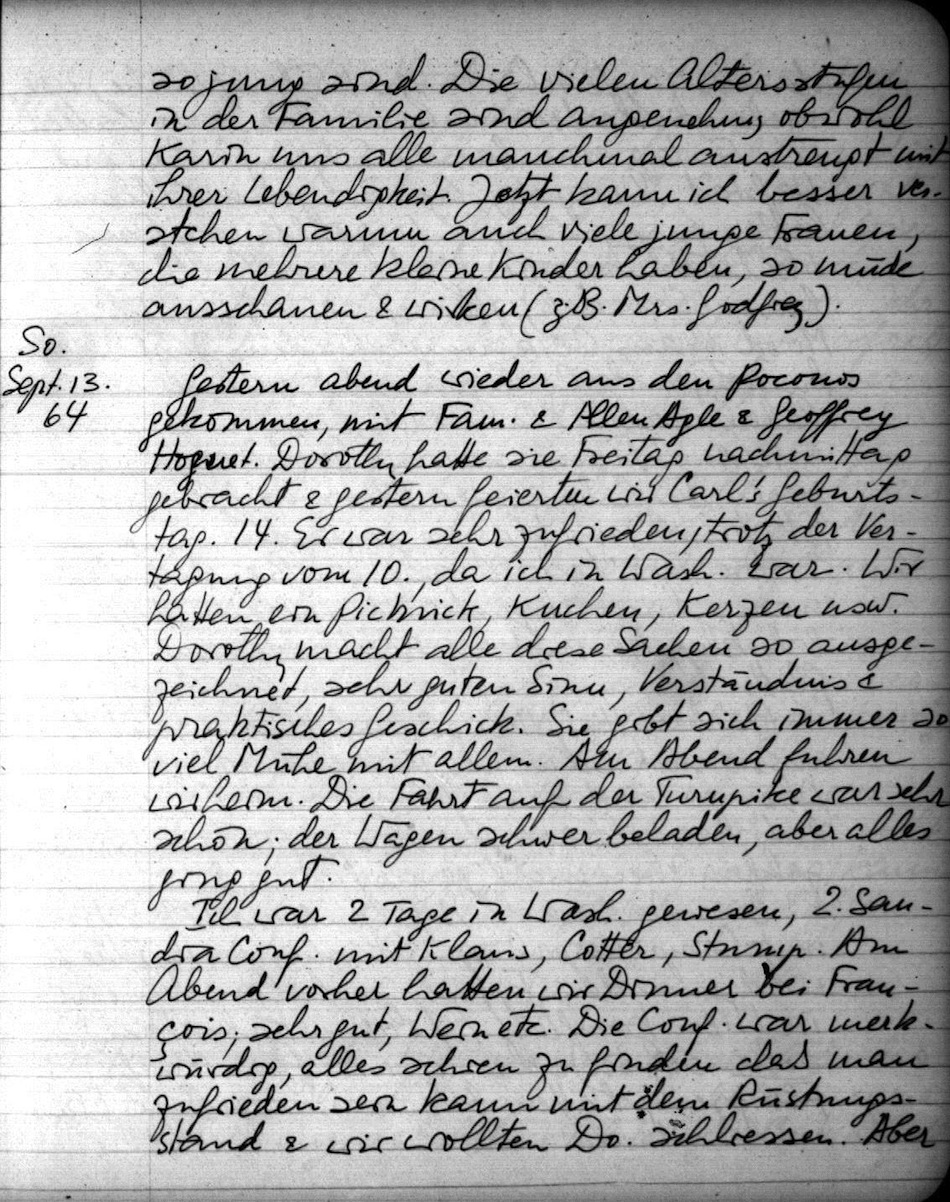 so jung sind. Die vielen Altersstufen
in der Familie sind angenehm, obwohl
Karin uns alle manchmal anstrengt mit
ihrer Lebendigkeit. Jetzt kann ich besser ver-
stehen warum auch viele junge Frauen,
die mehrere kleine Kinder haben, so müde
ausschauen & wirken (z.B. Mrs. Godfrey).
So.
Sept. 13.
64
Gestern abend wieder aus den Poconos
gekommen, mit Fam. & Allen Agle & Geoffrey
Hoguet. Dorothy hatte sie Freitag nachmittag
gebracht & gestern feierten wir Carl's Geburts-
tag. 14. Er war sehr zufrieden, trotz der Ver-
tagung vom 10., da ich in Wash. war. Wir
hatten ein Picknick, Kuchen, Kerzen usw.
Dorothy macht alle diese Sachen so ausge-
zeichnet, sehr guten Sinn, Verständnis &
praktisches Geschick. Sie gibt sich immer so
viel Mühe mit allem. Am Abend fuhren
wir heim. Die Fahrt auf der Turnpike war sehr
schön; der Wagen schwer beladen, aber alles
ging gut.
Ich war 2 Tage in Wash. gewesen, 2. San-
dia Conf. mit Klaus, Cotter, Stump. Am
Abend vorher hatten wir Dinner bei Fran-
çois; sehr gut, Wein etc. Die Conf. war merk-
würdig, alles schien zu finden dass man
zufrieden sein kann mit dem Rüstungs-
stand & wir wollten Do. schliessen. Aber